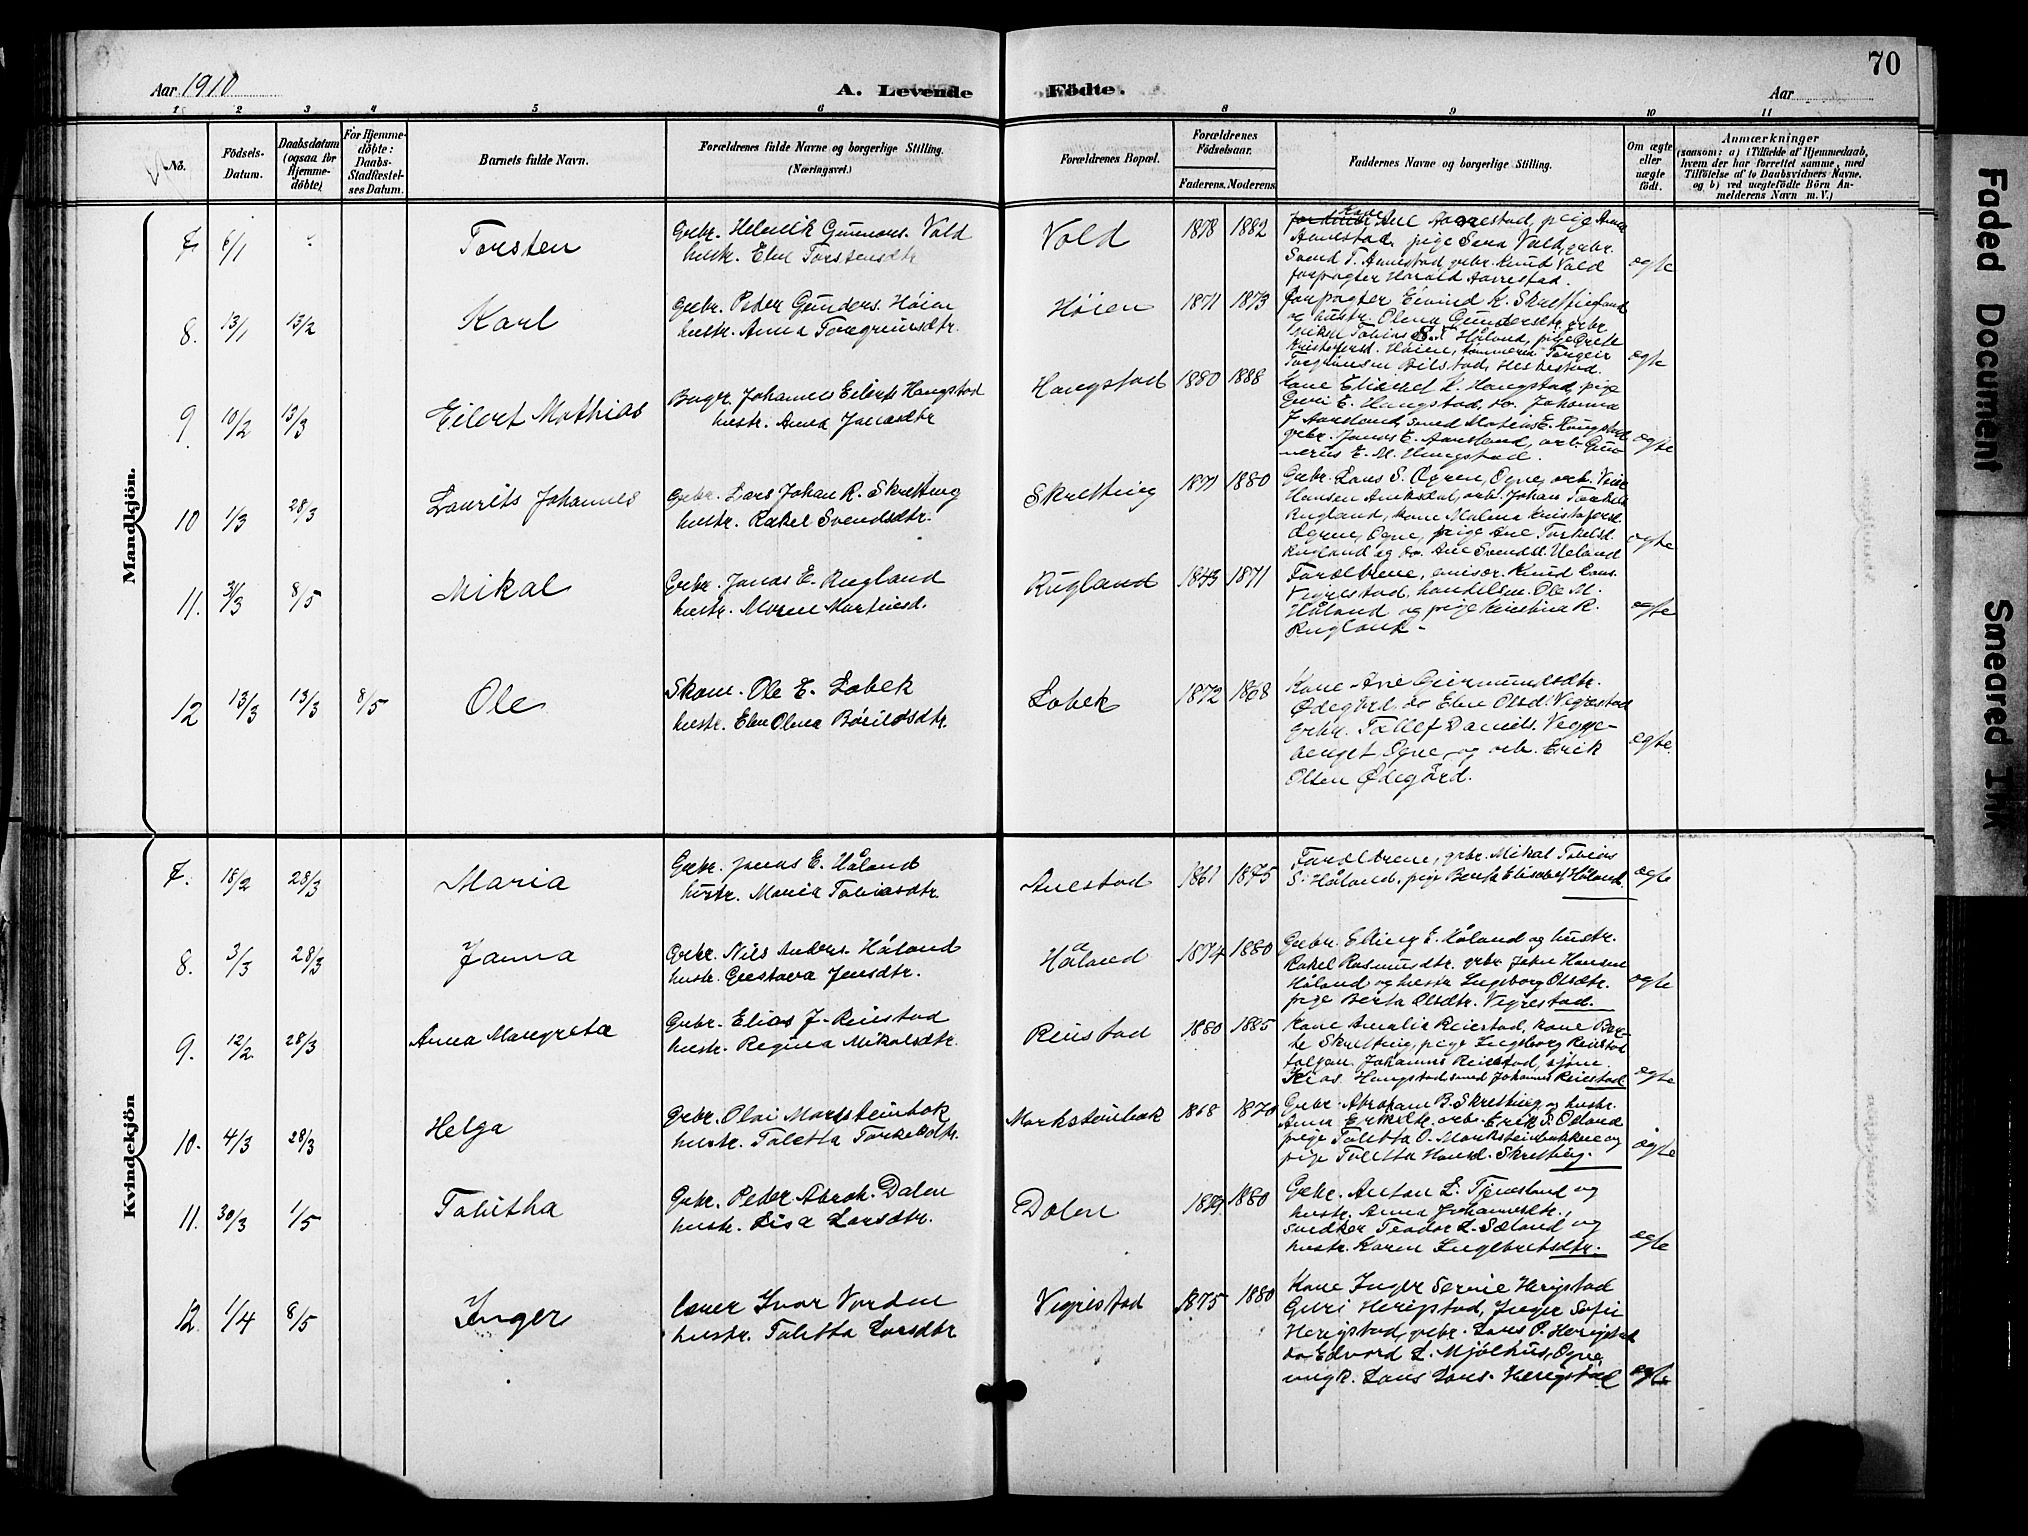 70
Aar 1910
A. Levende Födte.
Aar
1 2 3 4 5 6 8 9 10 11
No.
Födsels-Datum.
Daabsdatum (ogsaa for Hjemmedöbte)
For Hjemmedöbte: Daabs-Stadfæstelses Datum.
Barnets fulde Navn.
Forældrenes fulde Navne og borgerlige Stilling. (Næringsvei.)
Forældrenes Bopæl.
Forældrenes Födselsaar.
Faderens. Moderens
Faddernes Navne og borgerlige Stilling.
Om ægte eller uægte født.
Anmærkninger
(saasom: a) i Tilfælde af Hjemmedaab, hvem der har forrettet samme, med Tilføielse af to Daabsvidners Navne. og b) ved uægtefödte Börn Anmelderens Navn m.V.)
Mandkjön.
7. 6/1 Torsten
Gbr. Helmik Gunnars. Vold
hustr. Elen Torstensdtr
Vold 1878 1882
Kone Ane Aarrestad, pige Anna
Annestad, pige Sena Vold, gbr.
Svend T. Annestad, gbr. Knud Vold
forpagter Harald Aarrestad.
ægte
8. 13/1 13/2 Karl
Gbr. Peder Gunders. Høien
hustr. Anna Torgrimsdtr.
Høien 1871 1873
forpagter Eivind K. Skrettingland
og hustr. Olena Gundersdtr. gbr.
Mikal Tobias S. Håland, pige Grete
Kristofersd. Høien, tømmerm. Torgeir
Torgrimsen Bilstad, Heskestad.
ægte
9. 10/2 13/3 Eilert Mathias
Bugr. Johannes Eilerts Hangstad
hustr. Anna Jonasdtr
Hangstad 1880 1888
Kone Elisabet K. Hangstad, pige
Guri E. Hangstad, do. Johanna
J. Aarsland, smed Matias E. Hangstad
gbr. Jonas E. Aarsland, arb. Gun-
nerius E. M. Hangstad.
ægte
10 1/3 28/3 Laurits Johannes
Gbr. Lars Johan R. Skretting
hustr. Rakel Svendsdtr.
Skretting 1871 1880
Gbr. Lars S. Ogren, Ogne, arb.
Hansen Aniksdal, arb. Johan Torkels
Rugland, kone Malena Kristofersd.
Ogren, Ogne, pige Ane Torkelsd.
Rugland og do. Ane Svendsd. Ueland
ægte
11. 31/3 8/5 Mikal
Gbr. Jonas E. Rugland
hustr. Maren Martinsd.
Rugland 1843 1871
Forældrene, emisær Knud Lars.
Vigrestad, handelsm. Ole M.
Håland og pige Kristina R.
Rugland.
ægte
12 13/3 13/3 8/5 Ole
Skom. Ole E. Lobek
hustr. Elen Olena Bårildsdtr.
Lobek 1872 1868
Kone Ane Geirmundsdtr.
Ødegård, do Elen Olsd. Vigrestad
gbr. Tollef Daniels. Vegge-
benget Ogne, og arb. Erik
Olsen Ødegård.
ægte.
Kvindekjön
7. 18/2 28/3 Maria
Gbr. Jonas E. Håland
hustr. Maria Tobiasdtr.
Anestad 1861 1875
Forældrene, gbr. Mikal Tobias
S. Håland, pige Berta Elisabet Håland.
ægte
8. 3/3 28/3 Janna
Gbr. Nils Anders. Håland
hustr. Gustava Jensdtr.
Håland 1874 1880
Gbr. Elling E. Håland og hustr.
Rakel Rasmusdtr. gbr. John Hansen
Håland og hustr. Ingeborg Olsdtr.
pige Berta Olsdtr. Vigrestad.
ægte
9. 12/2 28/3 Anna Margreta
Gbr. Elias J. Reiestad
hustr. Regina Mikalsdtr.
Reiestad 1880 1885
Kone Amalia Reiestad, kone Ber-
te Skretting, pige Ingeborg Reiestad
Johannes Reiestad,
Hangstad smed Johannes Reiestad
ægte
10. 4/3 28/3 Helga
Gbr. Olai Marksteinbak
hustr. Taletta Torkelsdtr.
Marksteinbak 1868 1870
Gbr. Abraham B. Skretting og hustr.
Anna Eriksdtr. arb. Erik S. Oeland
pige Taletta O. Marksteinbakken og
pige Taletta Hansd. Skretting.
ægte
11. 30/3 1/5 Tabitha
Gbr. Peder Abrah. Dalen
hustr. Lisa Larsdtr.
Dalen 1879 1880
Gbr. Anton L. Tjensland og
hustr. Anna Johannesdtr.,
snedker Teodor L. Sæland og
hustr. Karen Ingebretsdtr.
ægte
12. 1/4 8/5 Inger
Ivar Norden
hustr. Taletta Larsdtr
Vigrestad 1875 1880
Kone Inger Serine Herigstad
Guri Herigstad, Inger Sofie
Herigstad, gbr. Lars O. Herigstad
do Edvard L. Mjølhus, Ogne,
ungk. Lars Lars. Herigstad
ægte
Faded Document
Smeared Ink